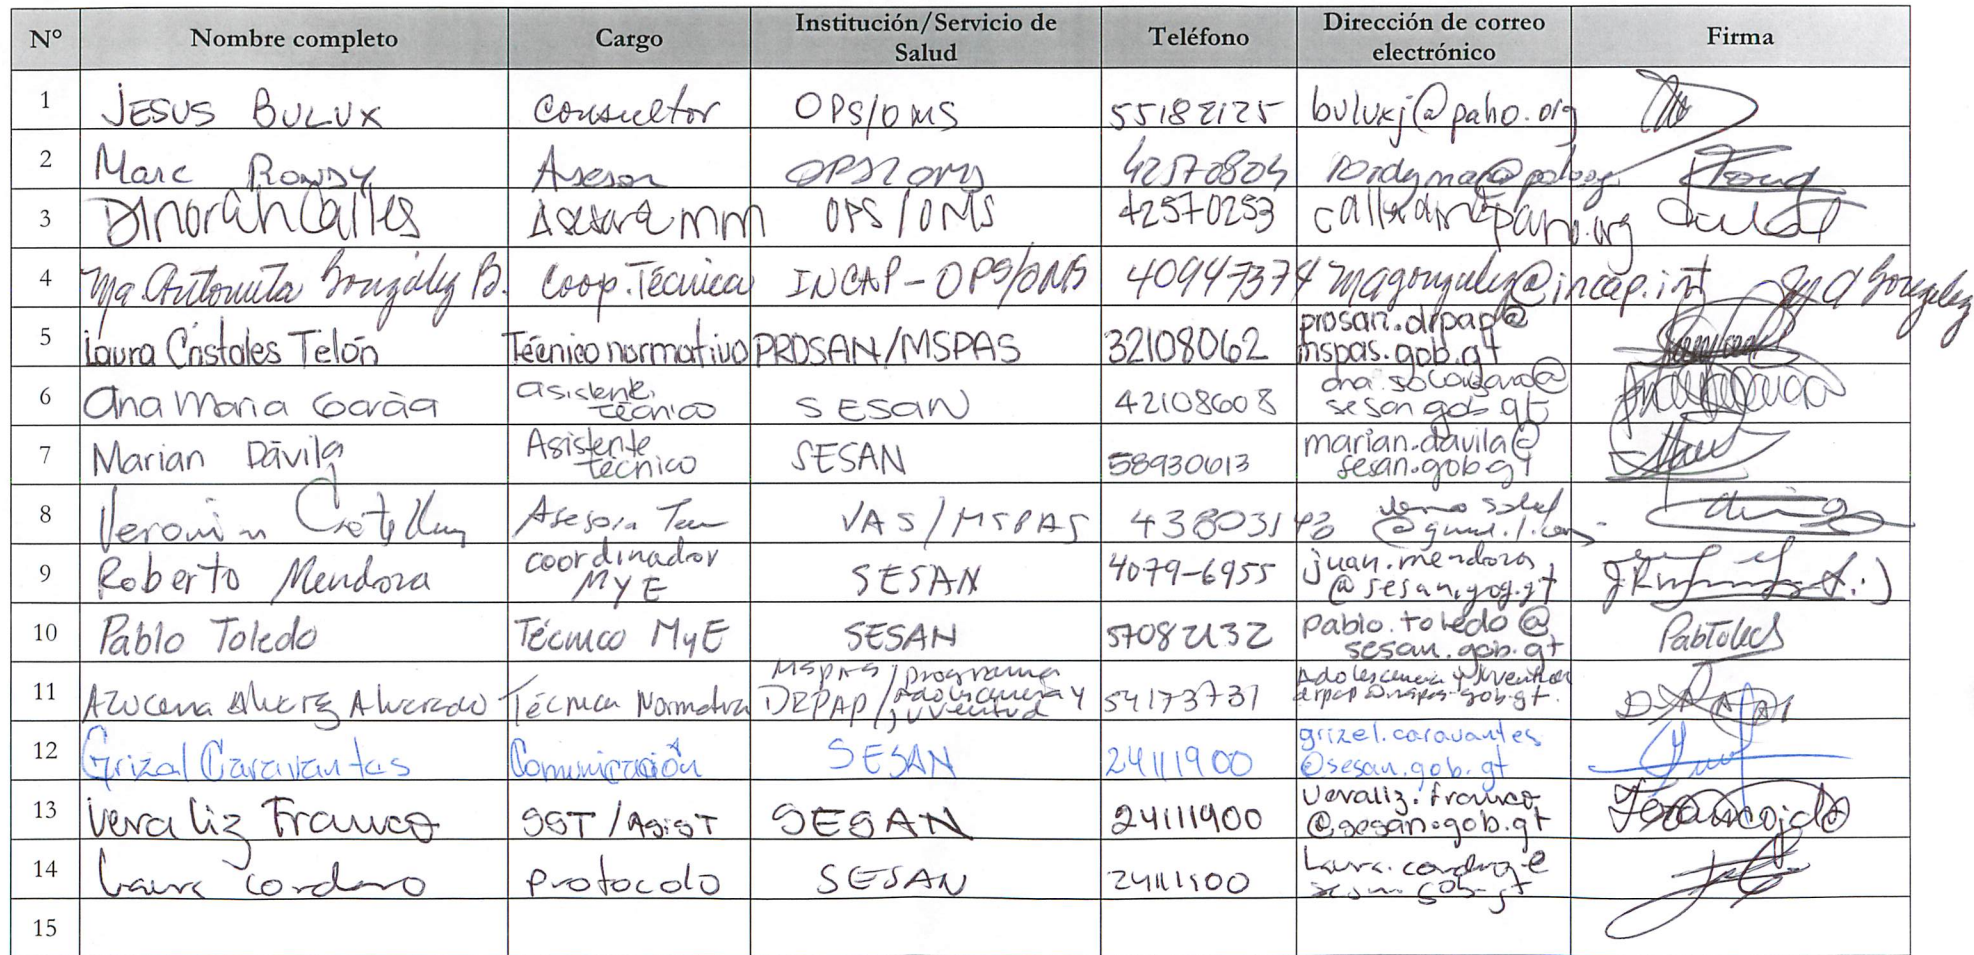 N° Nombre completo Cargo Institución/Servicio de Salud Teléfono Dirección de correo electrónico Firma
1 JESUS BULUX Consultor OPS/OMS 55182125 buluxj@paho.org
2 Marc Rondy Asesor OPS/OMS 42570804
3 Dinorah Calles Asesora mm OPS/OMS 42570253
4 Ma. Antonieta González B. Coop. Técnica INCAP-OPS/OMS 40947374 magonzalez@incap.int
5 Laura Cristales Telón Técnico normativo PROSAN/MSPAS 32108062 prosan.drpap@
mspas.gob.gt
6 Ana Maria García asistente técnico SESAN 42108608
sesan.gob.gt
7 Marian Dávila Asistente técnico SESAN 58930613 marian.davila@
sesan.gob.gt
8 Asesora VAS/MSPAS 43803193
9 Roberto Mendoza coordinador MyE SESAN 4079-6955 juan.mendoza
@sesan.gog.gt
10 Pablo Toledo Técnico MyE SESAN 57082132 pablo.toledo@
sesan.gob.gt PabToledo
11 Azucena Alvarado Técnica Normativa MSPAS/programa
DRPAP/adolescencia y
juventud 54173731 Adolescencia y juventud
drpap@mspas.gob.gt.
12 Grizal Caravantes Comunicación SESAN 24111900 grizel.caravantes
@sesan.gob.gt
13 Veraliz Franco SST/Asist SESAN 24111900 Veraliz.franco
@sesan.gob.gt
14 Laura cordero protocolo SESAN 24111900
15